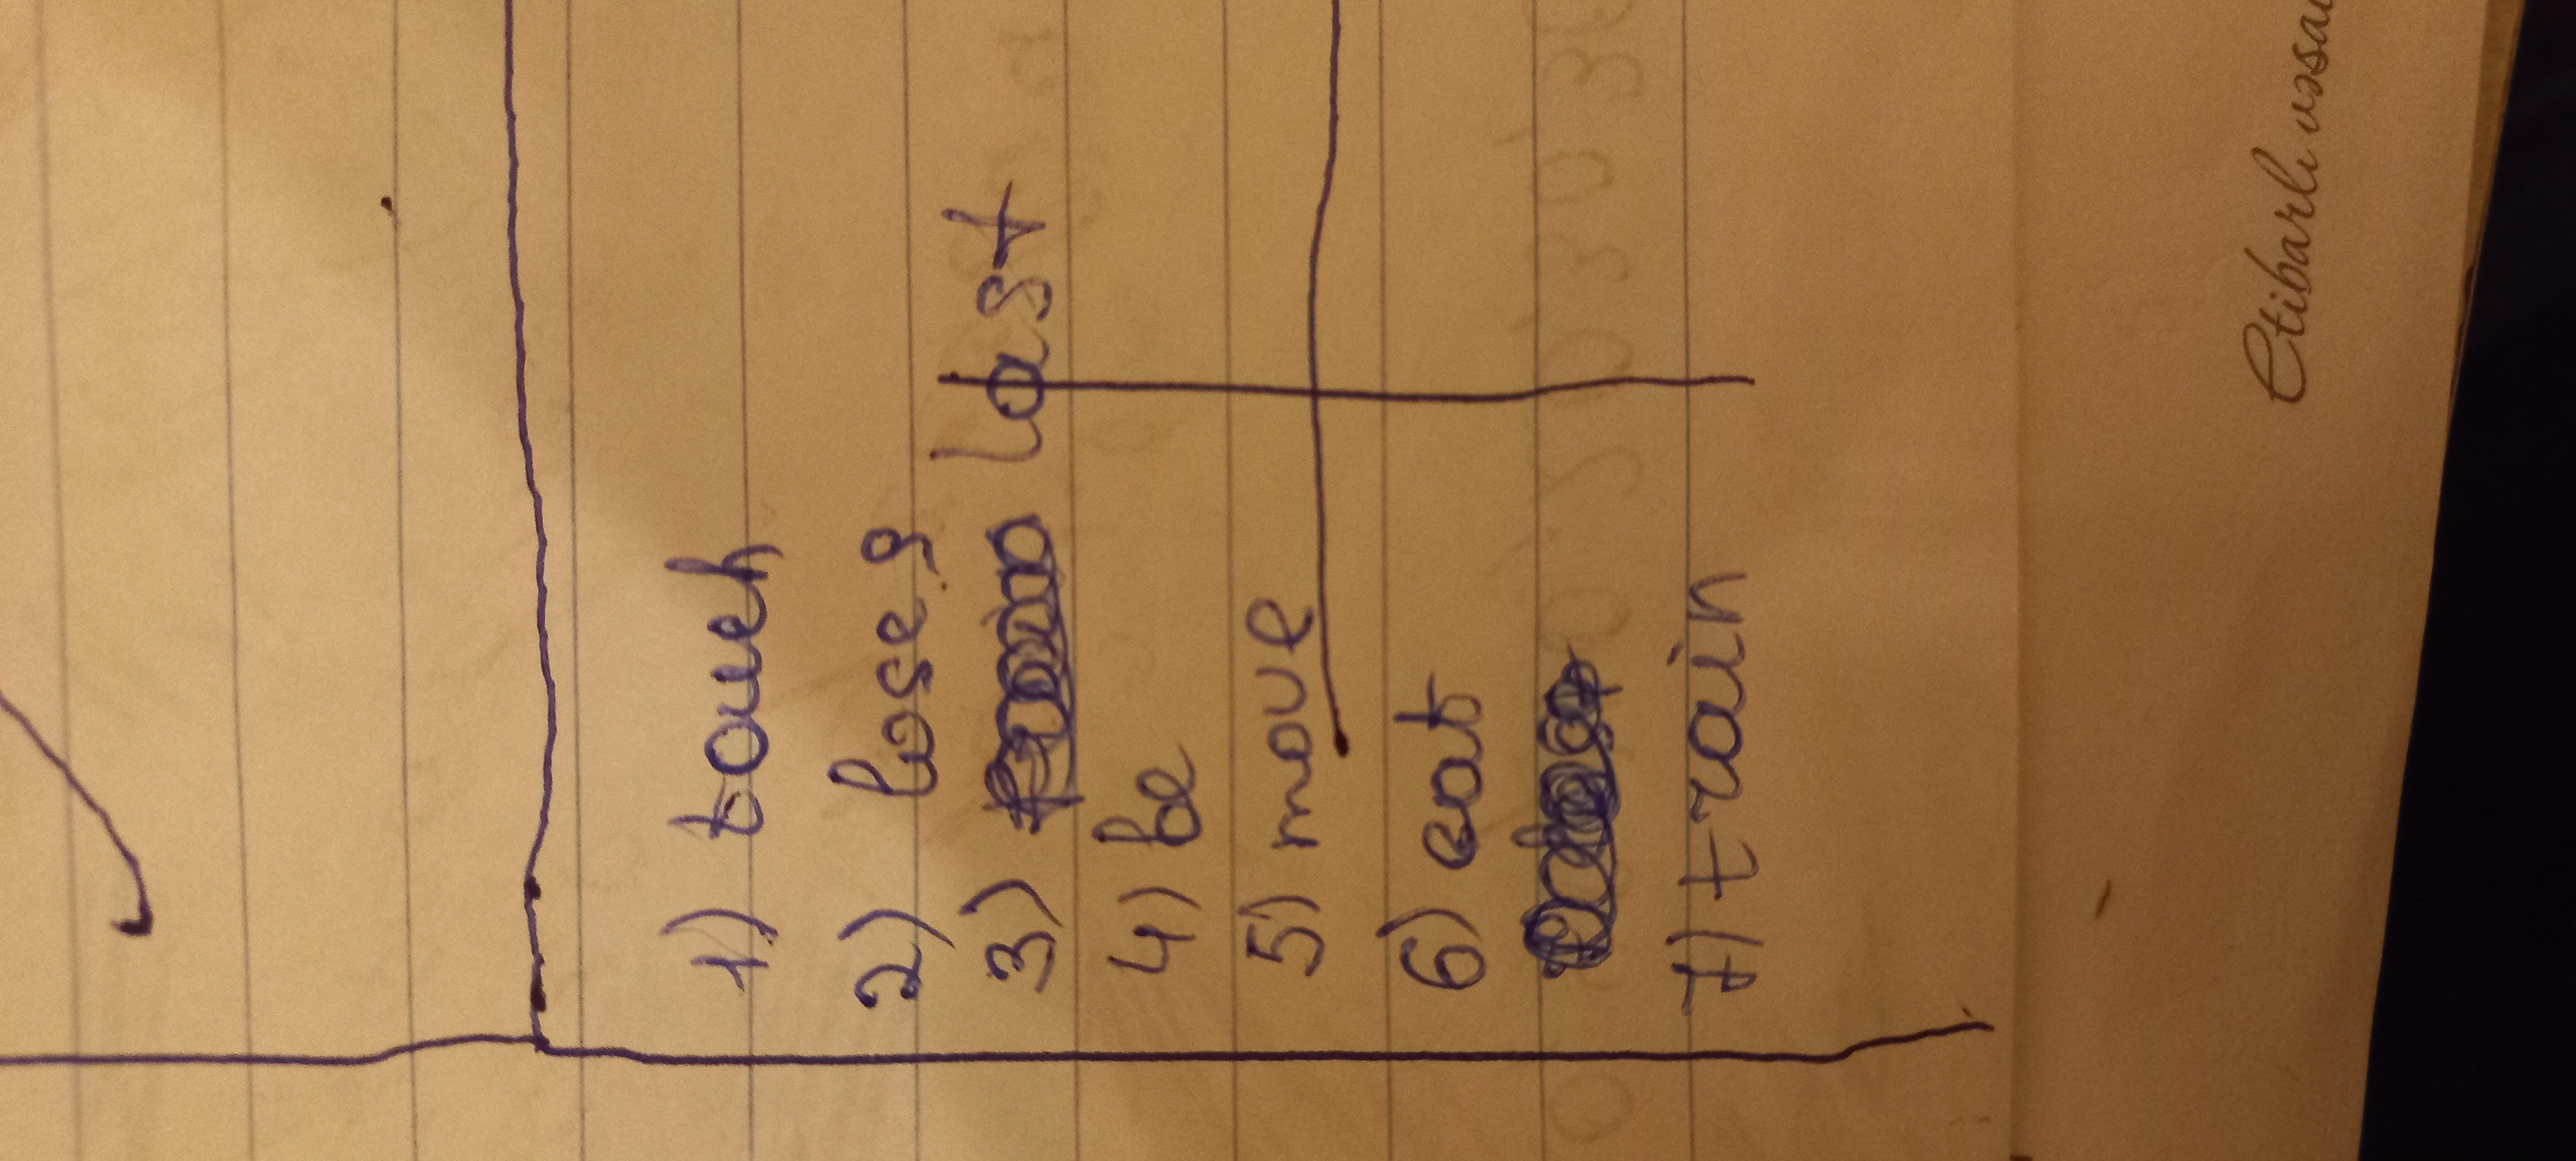 1) touch
2) lose
3) last
4) be
5) move
6) eat
7) train
Etibarlı